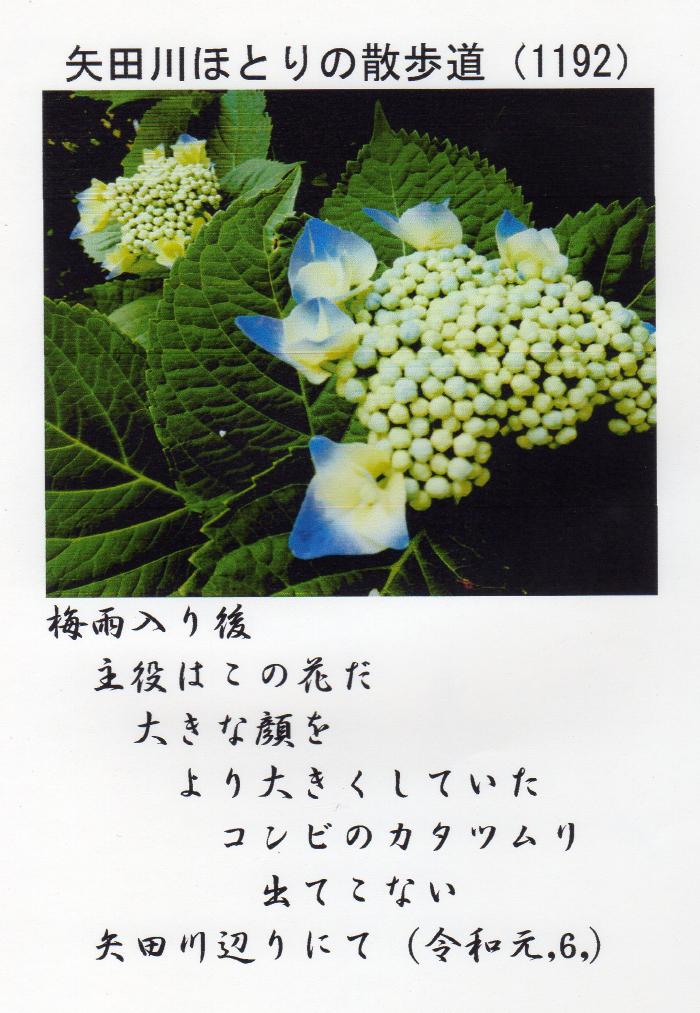 矢田川ほとりの散歩道（1192）
梅雨入り後
主役はこの花だ
大きな顔を
より大きくしていた
コンビのカタツムリ
出てこない
矢田川辺りにて（令和元,6,）